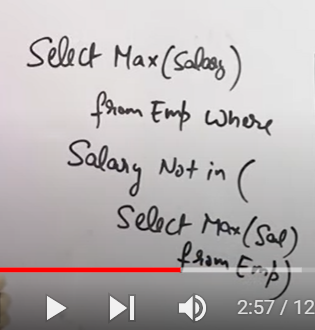 Select Max(Salary)
from Emp where
Salary Not in (
Select Max(Sal)
from Emp)
2:57 / 12